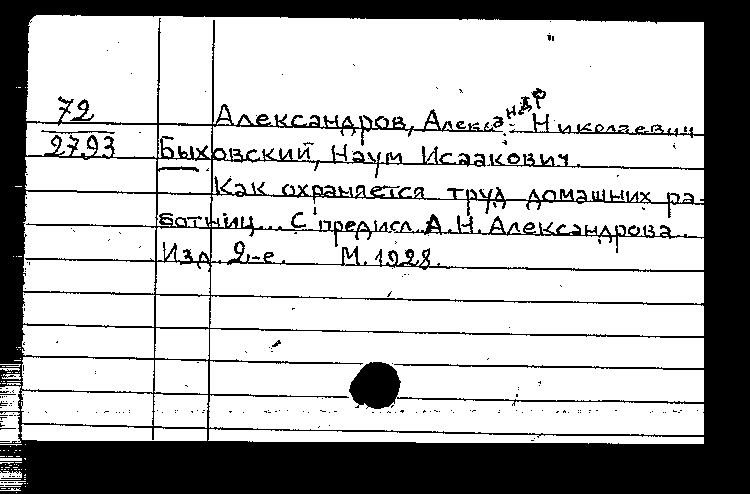 72
2793
Александров, Александр Николаевич
Быховский, Наум Исаакович.
Как охраняется труд домашних ра-
ботниц... С предисл. А.Н. Александрова.
Изд. 2-е. М. 1928.